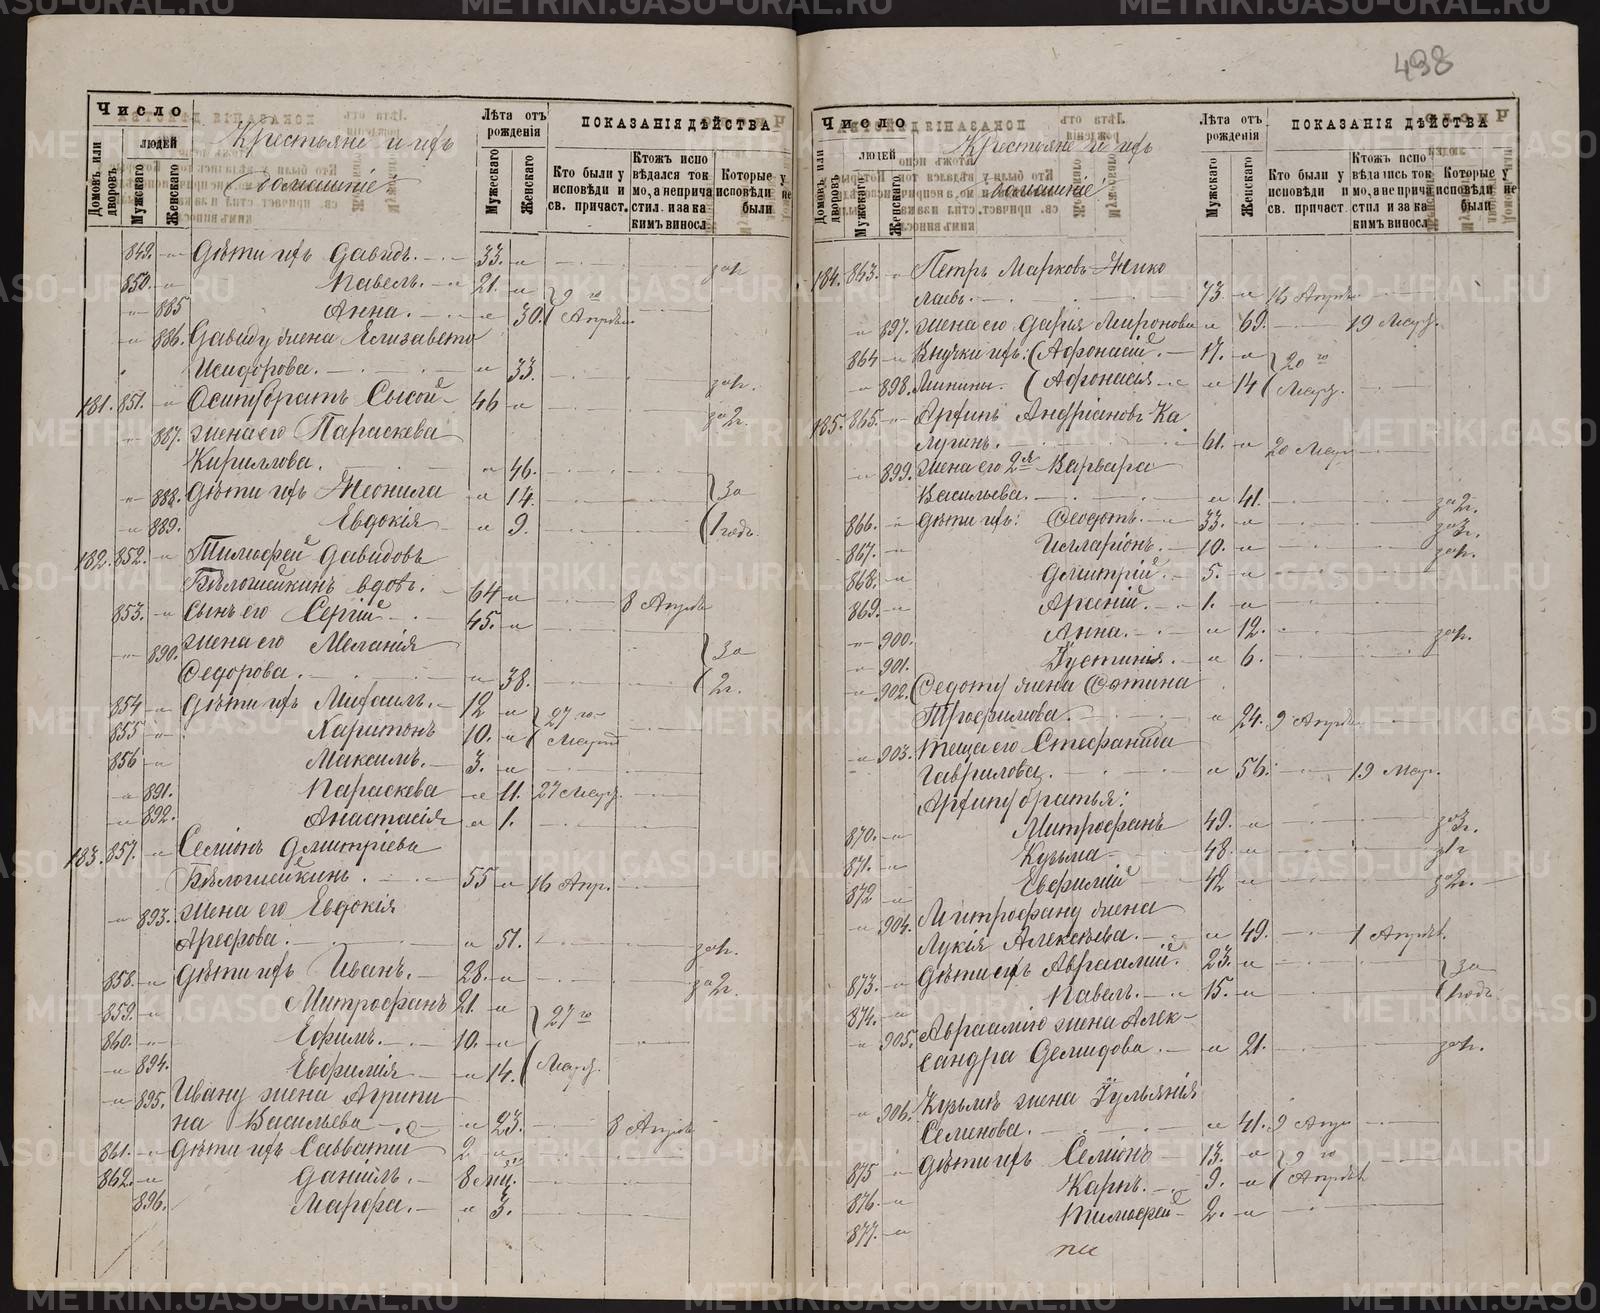 498
Число
людей
Домовъ или дворовъ.
Мужскаго
Женскаго
Крестьяне и ихъ
домашніе
Лѣта отъ рожденія
Мужескаго
Женскаго
ПОКАЗАНІЯ ДѢЙСТВА
Кто были у исповѣди и св. причаст.
Ктожъ испо вѣдался ток мо, а неприча стил. и за ка кимъ виносл
Которые у исповѣди не были
849. Дѣти ихъ Давидъ. 33. за 1г.
850. Павелъ. 21.
885 Анна. 30. 9 го Апрѣля
886. Давиду жена Елизавета
Исидорова. 33. за 1г.
181. 851. Осипу братъ Сысой 46 за 2г.
887. жена его Параскева
Кириллова. 46.
888. Дѣти ихъ Неонила 14. За
889. Евдокія 9. 1 годъ.
182. 852. Тимофей Давидовъ
Бѣлошейкинъ вдов. 64 8 Апрѣля
853. сынъ его Сергій 45.
890. жена его Меланія За
Федорова. 38. 2г.
854 Дѣти ихъ Михаилъ. 12 27 го
855 Харитонъ 10. Марта
856 Максимъ. 3.
891. Параскева 11. 27 Мар.
892. Анастасія 1.
183. 857. Семіонъ Дмитріевъ
Бѣлошейкинъ. 55 16 Апр.
893. жена его Евдокія
Арефова. 51. за 1г.
858. Дѣти ихъ Иванъ. 28. за 2г.
859. Митрофанъ 21. 27 го
860. Ефимъ. 10.
894. Евфимія 14. Мар.
895. Ивану жена Агрипи
на Васильева 23. 8 Апрѣля
861. Дѣти ихъ Савватій 2
862. Даніилъ. 8 мц.
896. Марфа. 3.
Число
людей
Домовъ или дворовъ
Мужскаго
Женскаго
Крестьяне и ихъ
домашніе
Лѣта отъ рожденія
Мужскаго
Женскаго
ПОКАЗАНІЯ ДѢЙСТВА
Кто были у исповѣди и св. причаст.
Ктожъ испо вѣдались ток мо, а не прича стил и за ка кимъ виносл
Которые у исповѣди не были
184. 863. Петръ Марковъ Нико
лаевъ. 73. 16 Апрѣля
897. жена его Дарія Миронова 69. 19 Мар.
864 Внучки ихъ: Афонасій. 17. 20 го
898. Минины. Афонасія 14 Мар.
185. 865. Архипъ Андріановъ Ка
лугинъ. 61. 20 Мар.
899. жена его 2я Варвара
Васильева. 41. за 2г.
866. Дѣти ихъ: Федотъ. 33. за 3г.
867. Илларіонъ. 10. за 1г.
868. Дмитрій. 5.
869. Арсеній. 1.
900. Анна. 12. за 1г.
901. Іустинія. 6.
902. Федоту жена Фотина
Трофимова. 24. 9 Апрѣля
903. теща его Стефанида
Гаврилова. 56. 19 Мар.
Архипу братья:
870. Митрофанъ 49. за 3г.
871. Кузьма 48. за 1г
872 Евфимій 42 за 2г.
904. Митрофану жена
Лукія Алексѣева. 49. 1 Апрѣля.
873. Дѣти ихъ Авраамій. 23. За
874. Павелъ. 15. 1 годъ
905. Авраамію жена Алек-
сандра Демидова. 21. за 1г.
906. Кузьмѣ жена Іульянія
Семенова. 41. 9 Апр.
875 Дѣти ихъ Семіонъ 13. 9 го
876. Карпъ. 9. Апрѣля
877. Тимофей 2.